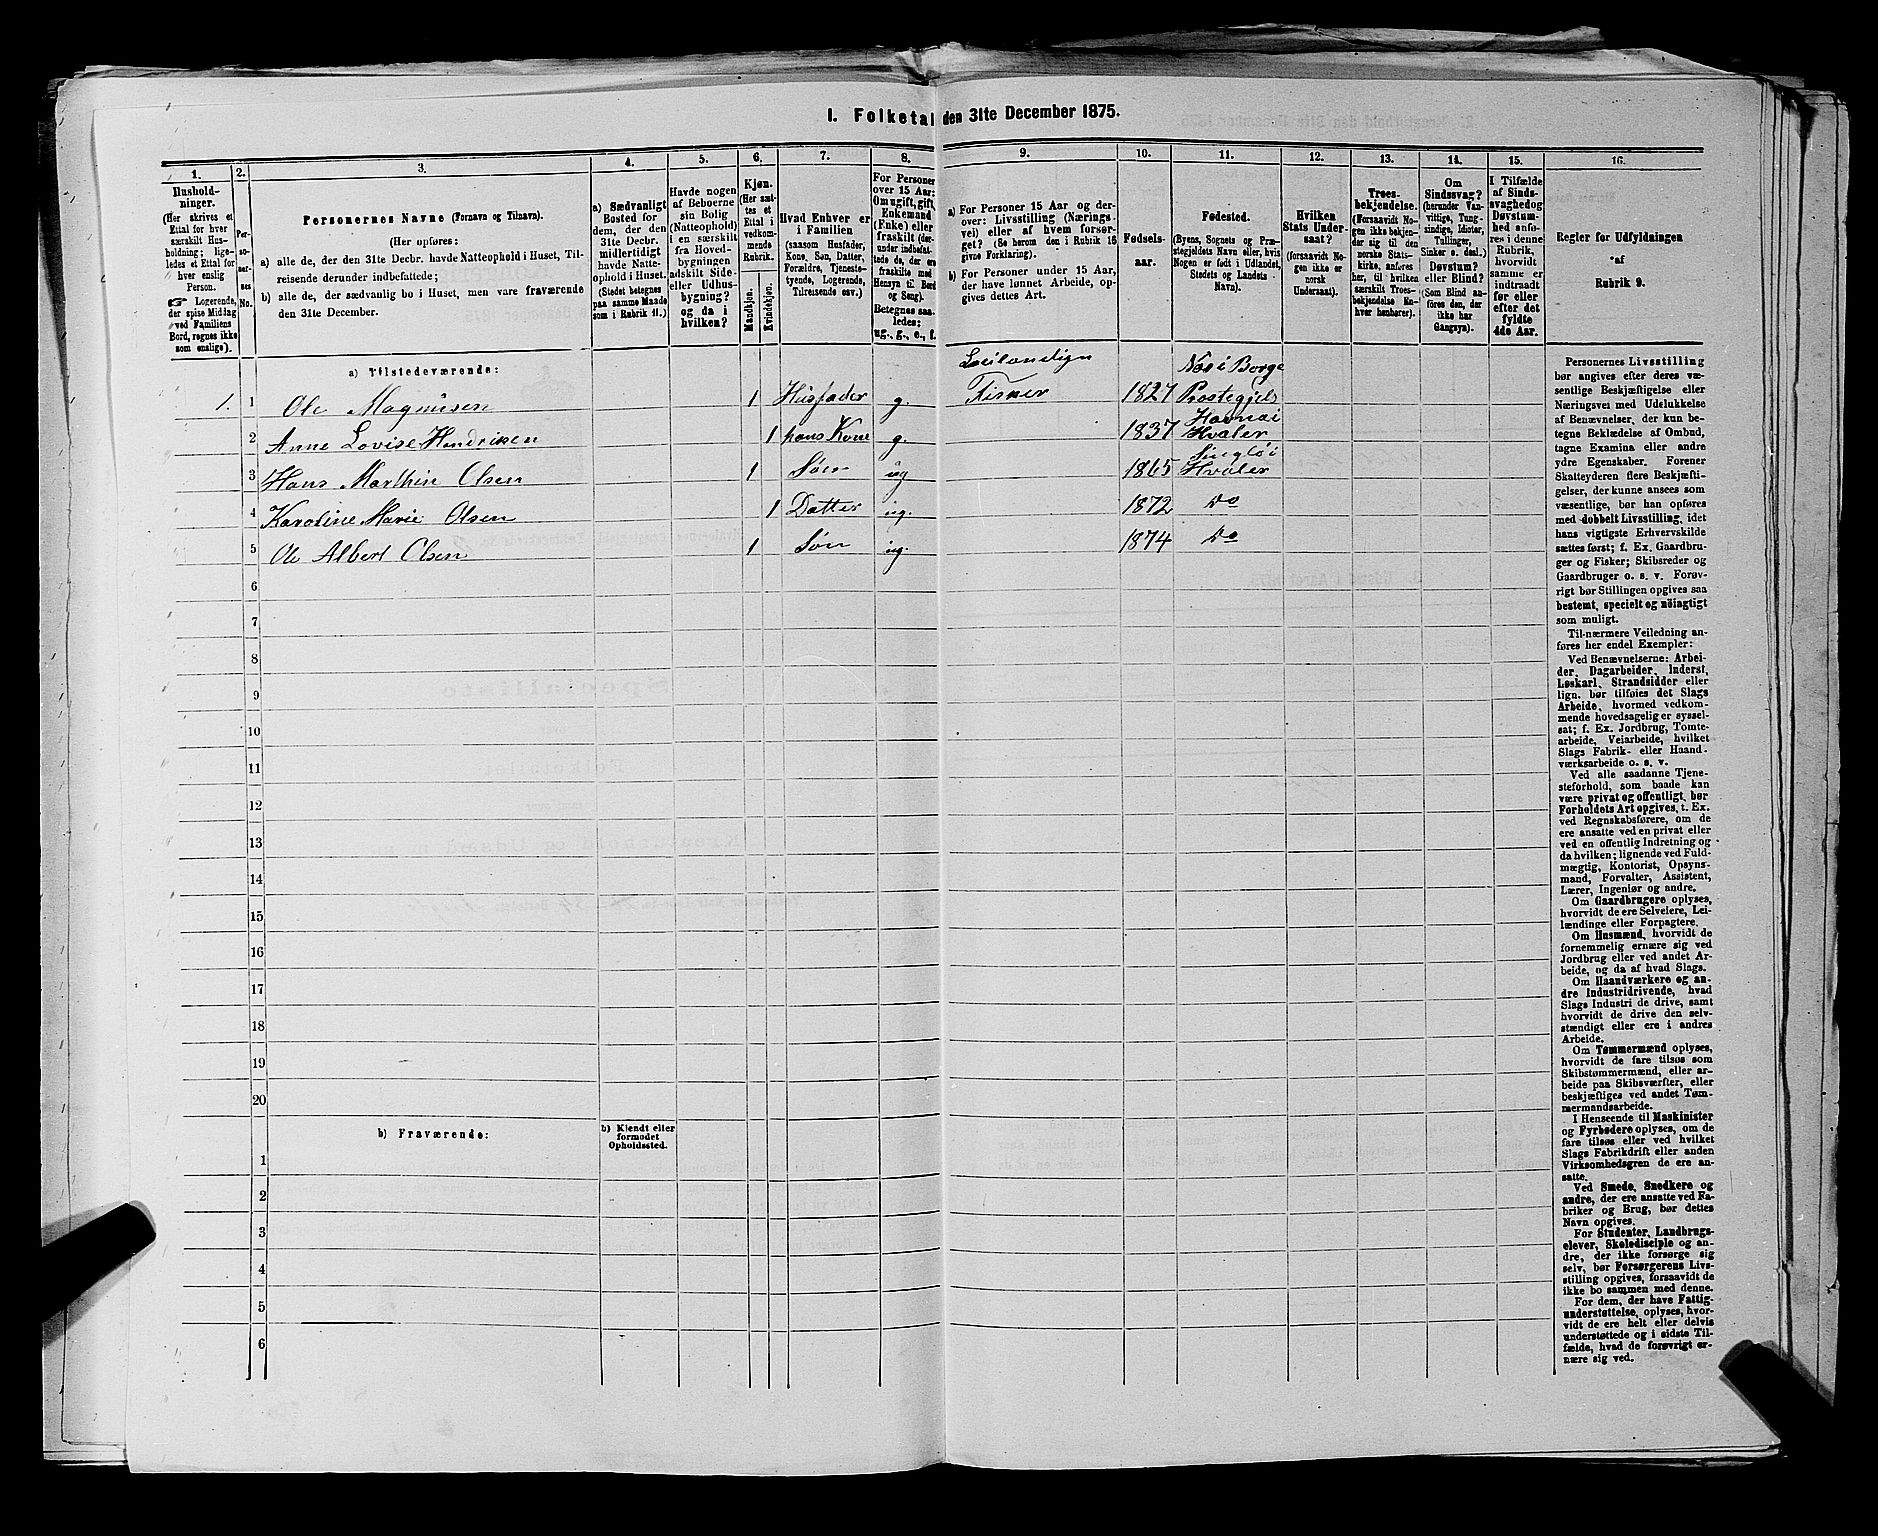 I. Folketal den 31te December 1875.
1.
2.
3.
4.
5.
6.
7.
8.
9.
10.
11.
12.
13.
14.
15.
16.
Hushold-
ninger.
(Her skrives et
Ettal for hver
særskilt Hus-
holdning; lige-
ledes et Ettal for
hver enslig
Person.
☞ Logerende,
der spise Middag
ved Familiens
Bord, regnes ikke
som enslige).
Per-
so-
ner-
nes
No.
Personernes Navne (Fornavn og Tilnavn).
(Her opføres:
a) alle de, der den 31te Decbr. havde Natteophold i Huset, Til-
reisende derunder indbefattede;
b) alle de, der sædvanlig bo i Huset, men vare fraværende
den 31te December.
a) Sædvanligt
Bosted for
dem, der den
31te Decbr.
midlertidigt
havde Natte-
ophold i Huset.
(Stedet betegnes
paa samme Maade
som i Rubrik 11.)
Havde nogen
af Beboerne
sin Bolig
(Natteophold)
i en særskilt
fra Hoved-
bygningen
adskilt Side-
eller Udhus-
bygning?
og da i
hvilken?
Kjøn.
(Her sæt-
tes et
Ettal i
vedkom-
mende
Rubrik.
Mandkjøn.
Kvindekjøn.
Hvad Enhver er
i Familien
(saasom Husfader,
Kone, Søn, Datter,
Forældre, Tjeneste-
tyende, Logerende,
Tilreisende osv.)
For Personer
over 15 Aar:
Om ugift, gift,
Enkemand
(Enke) eller
fraskilt (der-
under indbefat-
tede de, der ere
fraskilte med
Hensyn til Bord
og Seng).
Betegnes saa-
ledes:
ug., g., e., f.
a) For Personer 15 Aar og der-
over: Livsstilling (Nærings-
vei) eller af hvem forsør-
get? (Se herom den i Rubrik 16
givne Forklaring).
b) For Personer under 15 Aar,
der have lønnet Arbeide, op-
gives dettes Art.
Fødsels-
aar.
Fødested.
(Byens, Sognets og Præ-
stegjeldets Navn eller, hvis
Nogen er født i Udlandet,
Stedets og Landets
Navn).
Hvilken
Stats Under-
saat?
(forsaavidt No-
gen ikke er
norsk
Undersaat).
Troes-
bekjendelse.
(Forsaavidt No-
gen ikke bekjen-
der sig til den
norske Stats-
kirke, anføres
her, til hvilken
særskilt Troes-
bekjendelse En-
hver henhører).
Om
Sindssvag?
(herunder Van-
vittige, Tung-
sindige, Idioter,
Tullinger,
Sinker o. desl.)
Døvstum?
eller Blind?
(Som Blind an-
føres den, der
ikke har
Gangsyn).
I Tilfælde
af Sinds-
svaghed og
Døvstum-
hed anfø-
res i denne
Rubrik,
hvorvidt
samme er
indtraadt
før eller
efter det
fyldte
4de Aar.
Regler for Udfyldningen
af
Rubrik 9.
a) Tilstedeværende:
Leilændign Næs i Borge
1. 1 Ole Magnusen 1 Husfader g. Fisker 1827 Prostegjels
Havnæi
2 Anne Lovise Hendriksen 1 hans Kone g. 1837 Hvaler
Singløi
3 Hans Marthin Olsen 1 Søn ug 1865 Hvaler
4 Karoline Marie Olsen 1 Datter ug. 1872 do
5 Ole Albert Olsen 1 Søn ug. 1874 do
6
7
8
9
10
11
12
13
14
15
16
17
18
19
20
b) Fraværende:
b) Kjendt eller
formodet
Opholdssted.
1
2
3
4
5
6
Personernes Livsstilling
bør angives efter deres væ-
sentlige Beskjæftigelse eller
Næringsvei med Udelukkelse
af Benævnelser, der kun be-
tegne Beklædelse af Ombud,
tagne Examina eller andre
ydre Egenskaber. Forener
Skatteyderen flere Beskjæfti-
gelser, der kunne ansees som
væsentlige, bør han opføres
med dobbelt Livsstilling, idet
hans vigtigste Erhvervskilde
sættes først; f. Ex. Gaardbru-
ger og Fisker; Skibsreder og
Gaardbruger o. s. v. Forøv-
rigt bør Stillingen opgives saa
bestemt, specielt og nöiagtigt
som muligt.
Til nærmere Veiledning an-
føres her endel Exempler:
Ved Benævnelserne: Arbei-
der, Dagarbeider, Inderst,
Løskarl, Strandsidder eller
lign. bør tilføies det Slags
Arbeide, hvormed vedkom-
mende hovedsagelig er syssel-
sat; f. Ex. Jordbrug, Tomte-
arbeide, Veiarbeide, hvilket
Slags Fabrik- eller Haand-
værksarbeide o. s. v.
Ved alle saadanne Tjene-
steforhold, som baade kan
være privat og offentligt, bør
Forholdets Art opgives, t. Ex.
ved Regnskabsførere, om de
ere ansatte ved en privat eller
ved en offentlig Indretning og
da hvilken; lignende ved Fuld-
mægtig, Kontorist, Opsyns-
mand, Forvalter, Assistent,
Lærer, Ingeniør og andre.
Om Gaardbrugere oplyses,
hvorvidt de ere Selveiere, Lei-
lændinge eller Forpagtere.
Om Husmænd, hvorvidt de
fornemmelig ernære sig ved
Jordbrug eller ved andet Ar-
beide, og da af hvad Slags.
Om Haandværkere og an-
dre Industridrivende, hvad
Slags Industri de drive, samt
hvorvidt de drive den selv-
stændigt eller ere i andres
Arbeide.
Om Tømmermænd oplyses,
hvorvidt de fare tilsøs som
Skibstømmermænd, eller ar-
beide paa Skibsværfter, eller
beskjæftiges ved andet Tøm-
mermandsarbeide.
I Henseende til Maskinister
og Fyrbødere oplyses, om de
fare tilsøs eller ved hvilket
Slags Fabrikdrift eller anden
Virksomhedsgren de ere an-
satte.
Ved Smede, Snedkere og
andre, der ere ansatte ved Fa-
briker og Brug, bør dettes
Navn opgives.
For Studenter, Landbrugs-
elever, Skoledisciple og an-
dre, der ikke forsørge sig
selv, bør Forsørgerens Livs-
stilling opgives, forsaavidt de
ikke bo sammen med denne.
For dem, der have Fattig-
understøttelse, oplyses, hvor-
vidt de ere helt eller delvis
understøttede og i sidste Til-
fælde, hvad de forøvrigt er-
nære sig ved.